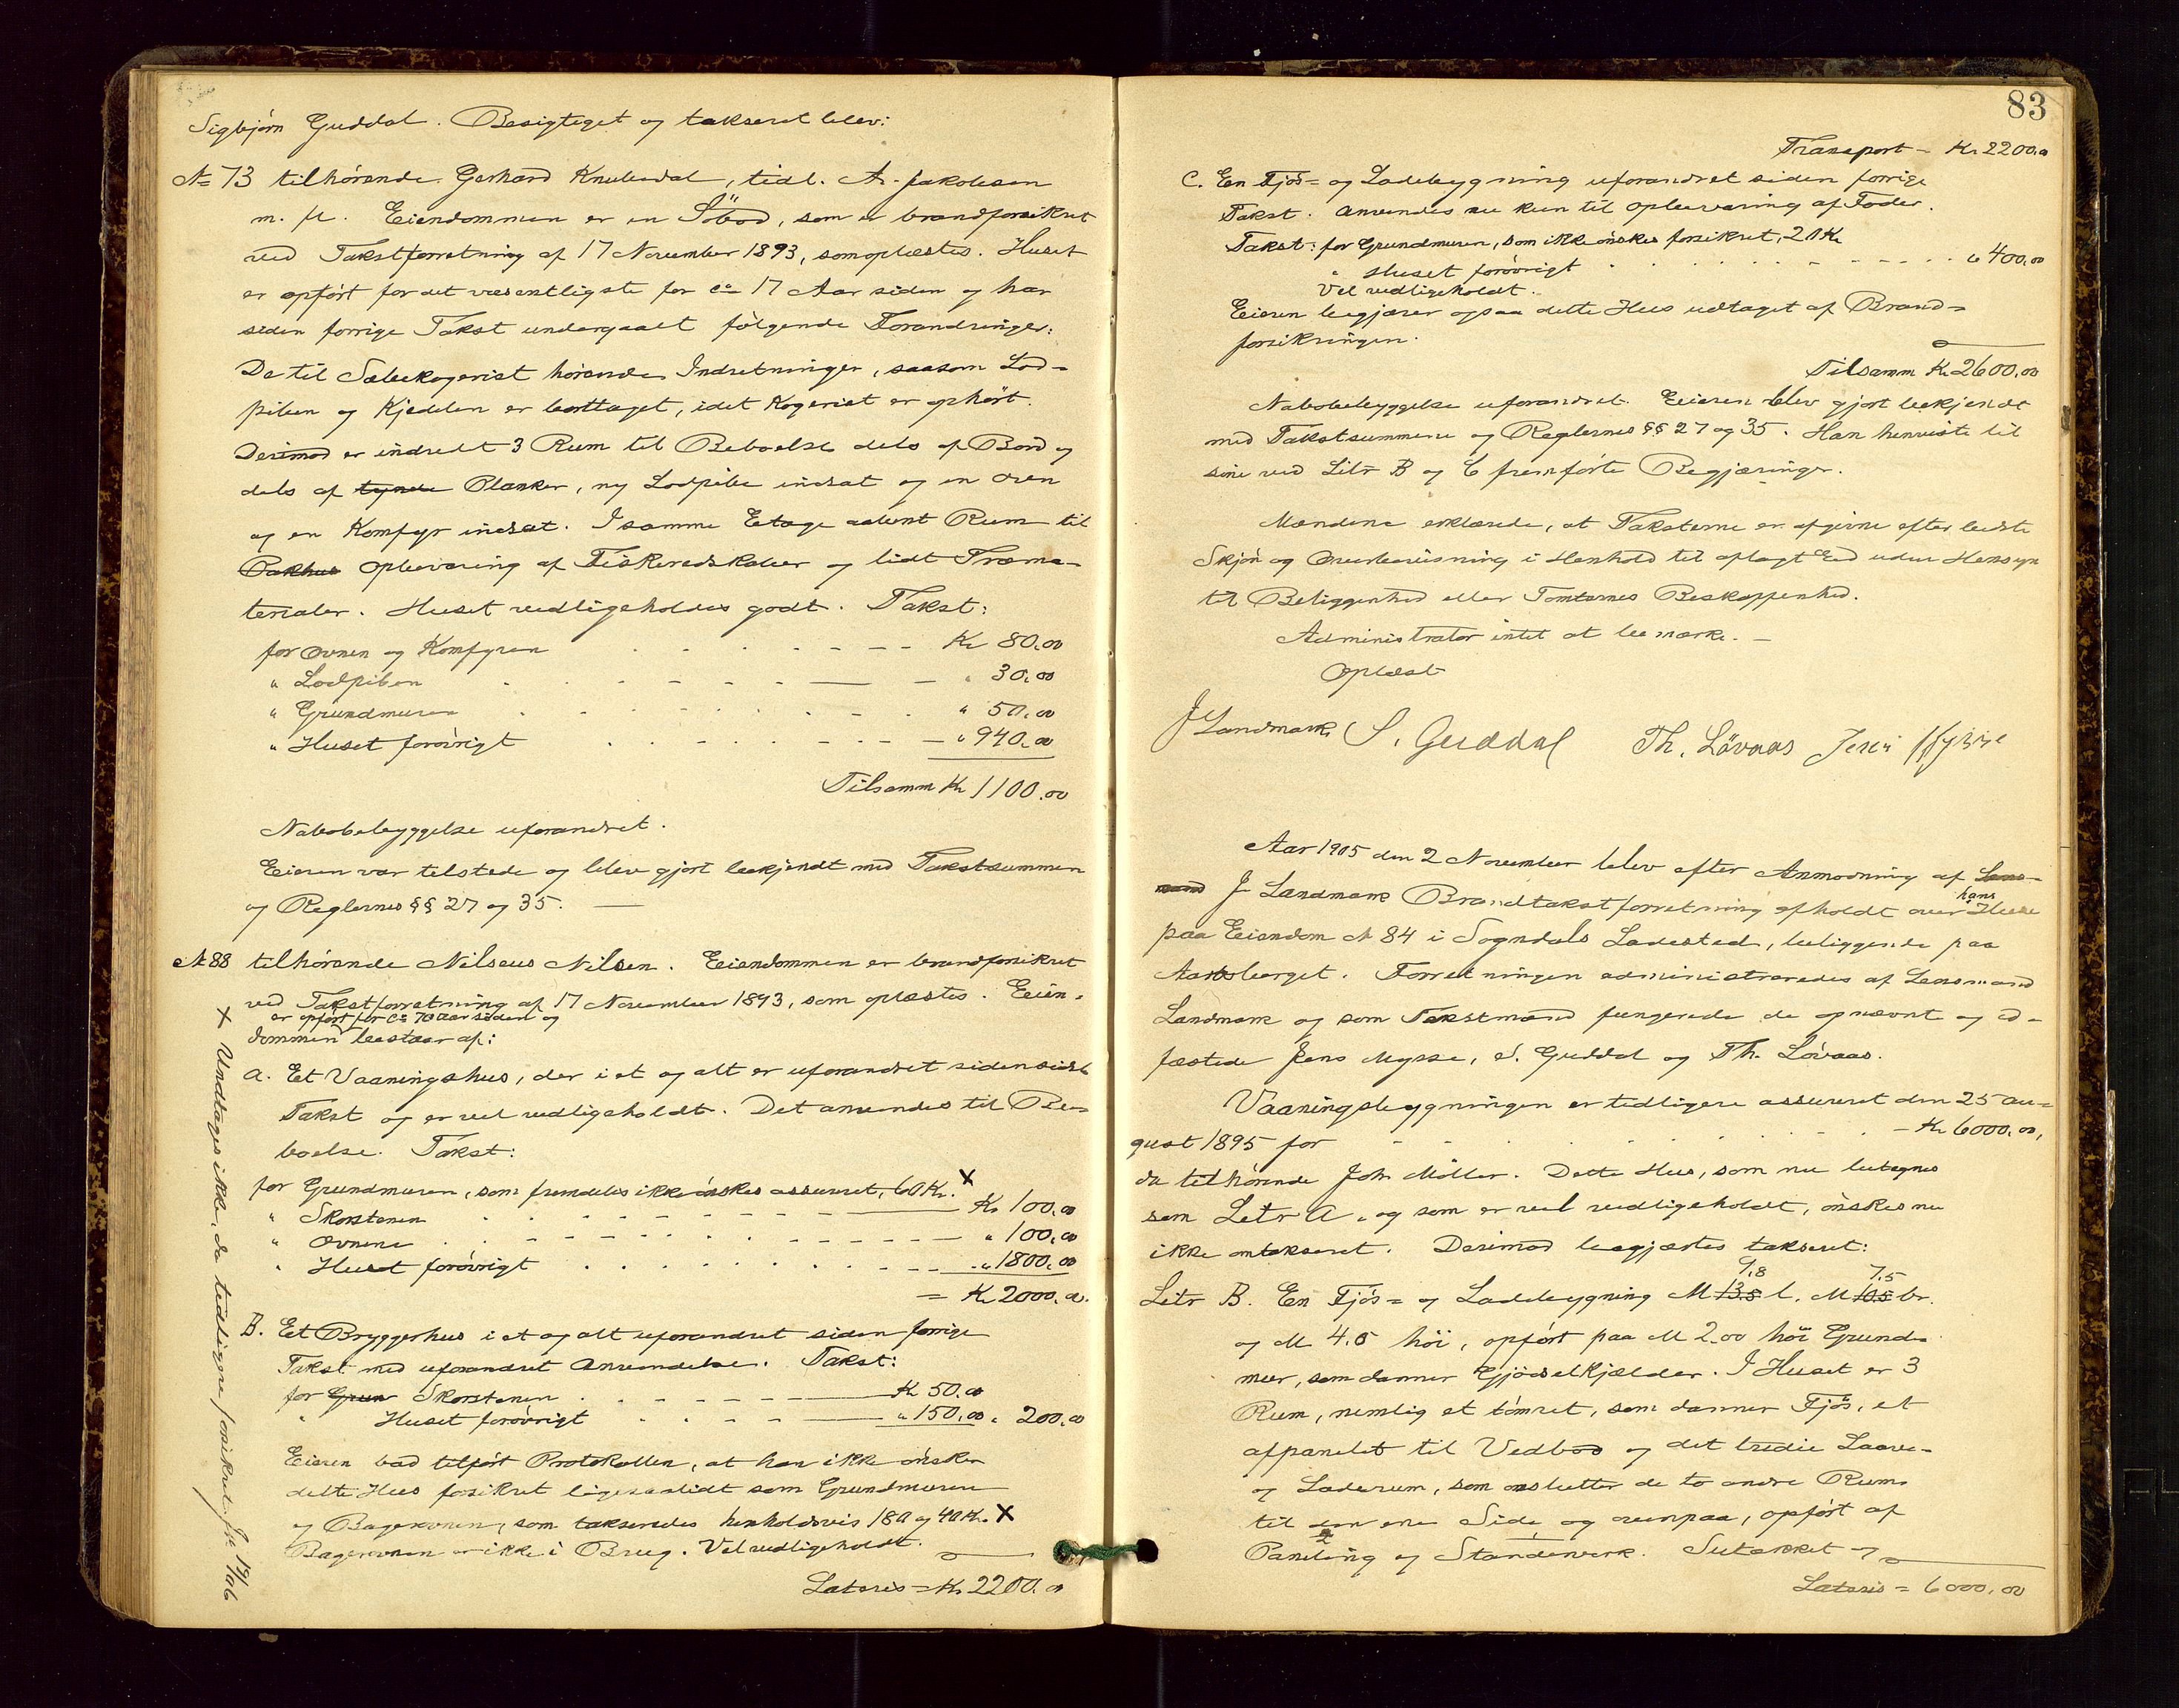 Sigbjørn Guddal. Besigtiget og takseret blev:
No 73 tilhørende Gerhard Knubedal, tidl. A. Jakobsen
m. fl. Eiendommen er en Søbod, som er brandforsikret
ved Takstforretning af 17 November 1893, som oplæstes. Huset
er opført for det væsentligste for ca 17 Aar siden og har
siden forrige Takst undergaaet følgende Forandringer:
De til Sæbekogeriet hørende Indretninger, saasom Lod-
piben og Kjedelen er borttaget, idet Kogeriet er ophørt.
Derimod er indredt 3 Rum til Beboelse dels af Bord og
dels af tynde Planker, ny Lodpibe indsat og en Ovn
og en Komfyr indsat. I samme Etage aabent Rum til
Pakhus Opbevaring af Fiskeredskaber og lidt Træma-
terialer. Huset vedligeholdes godt. Takst:
for Ovnen og Komfyren Kr 80.00
" Lodpiben " 30.00
" Grundmuren " 50.00
" Huset forøvrigt " 940.00
Tilsamm Kr 1100.00
Nabobebyggelse uforandret.
Eieren var tilstede og blev gjort bekjendt med Takstsummen
og Reglernes §§ 27 og 35.
No 88 tilhørende Nilseus Nilsen. Eiendommen er brandforsikret
ved Takstforretning af 17 November 1893, som oplæstes. Eien-
er opført for ca 70 aar siden og
dommen bestaar af:
a. Et Vaaningshus, der i et og alt er uforandret siden sidste
Takst og er vel vedligeholdt. Det anvendes til Be-
boelse. Takst:
for Grundmuren, som fremdeles ikke ønskes assureret, 60 Kr. X
" Skorstenen Kr 100.00
" Ovnene " 100.00
" Huset forøvrigt " 1800.00
= Kr 2000.00.
B. Et Bryggerhus i et og alt uforandret siden forrige
Takst med uforandret Anvendelse. Takst:
for Grun Skorstenen Kr 50.00
" Huset forøvrigt " 150.00 " 200.00
Eieren bad tilført Protokollen, at han ikke ønsker
dette Hus forsikret ligesaalidt som Grundmuren
og Bagerovnen, som takseredes henholdsvis 180 og 40 Kr. X
Bagerovnen er ikke i Brug. Vel vedligeholdt.
Lateris = Kr 2200.00
X Undtages ikke, da tidligere forsikret.
83
Transport - Kr 2200.00
C. Een Fjøs= og Ladebygning uforandret siden forrige
Takst. Anvendes nu kun til Opbevaring af Foder.
Takst: for Grundmuren, som ikke ønskes forsikret, 20 Kr
" Huset forøvrigt " 400.00
Vel vedligeholdt.
Eieren begjærer ogsaa dette Hus udtaget af Brand=
forsikringen.
Tilsamm Kr 2600.00
Nabobebyggelse uforandret. Eieren blev gjort bekjendt
med Takstsummene og Reglernes §§ 27 og 35. Han henviste til
sine ved Litr B og C fremførte Begjæringer.
Mændene erklærede, at Taksterne er afgivne efter bedste
Skjøn og Overbevisning i Henhold til aflagt Eed uden Hensyn
til Beliggenhed eller Tomternes Beskaffenhed.
Administrator intet at bemærke. -
Oplæst
J Landmark S. Guddal Th. Lövaas Jens
Aar 1905 den 2 November blev efter Anmodning af Lens-
mand J Landmark Brandtakstforretning afholdt over hans Huse
paa Eiendom No 84 i Sogndals Ladested, beliggende paa
Aarsberget. Forretningen administreredes af Lensmand
Landmark og som Takstmænd fungerede de opnævnte og ed-
fæstede Jens Mysse, S. Guddal og Th. Lövaas.
Vaaningsbygningen er tidligere assureret den 25 au=
gust 1895 for - Kr 6000.00,
da tilhørende Joh. Müller. Dette Hus, som nu betegnes
som Letr A, og som er vel vedligeholdt, ønskes nu
ikke omtakseret. Derimod begjærtes takseret:
9,8 7,5
Letr B. En Fjøs= og Ladebygning M 13.5 l. M 10.5 br.
og M 4.5 høi, opført paa M 2.00 høi Grund-
mur, som danner Gjødselkjælder. I Huset er 3
Rum, nemlig et tømret, som danner Fjøs, et
afpanelet til Vedbod og det tredie Laave-
og Laderum, som omslutter de to andre Rum
til den ene Side og ovenpaa, opført af
Paneling og Standerverk.
Lateris = 6000.00